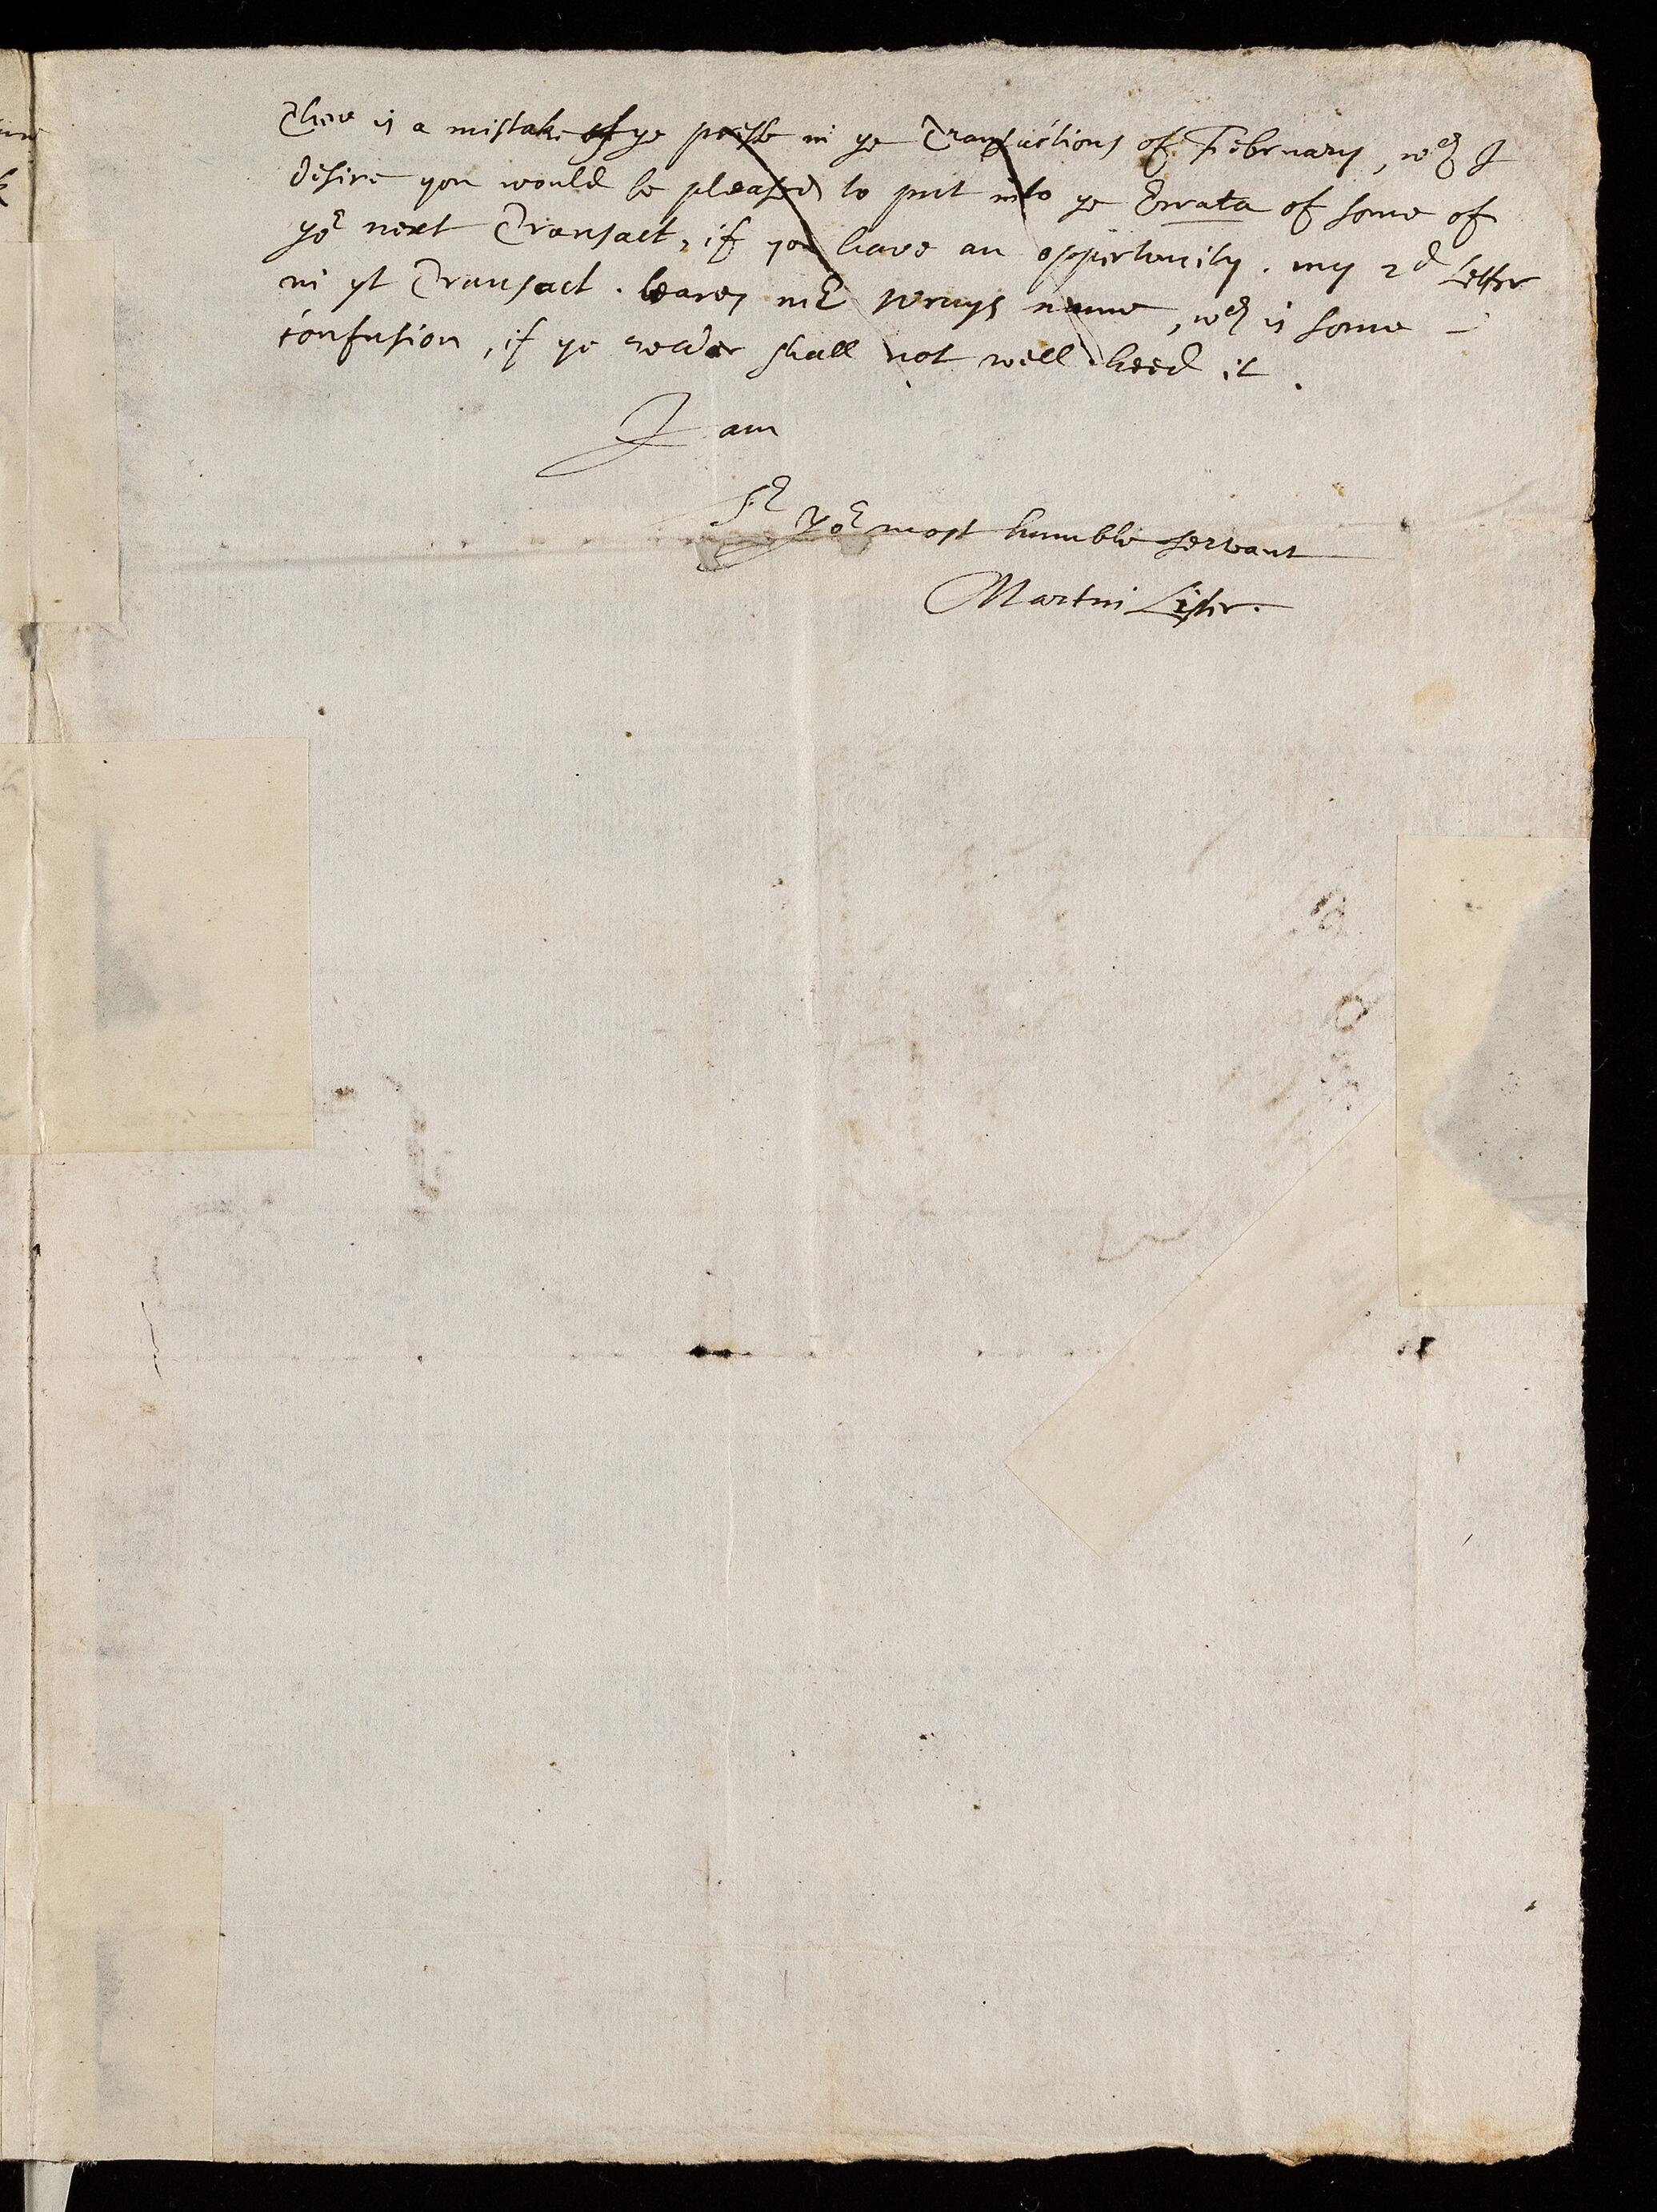 There is a mistake of ye presse in ye Transactions of February, wch I
desire you would be pleased to put into ye Errata of some of
yor next Transact, if you have an opportunity. my 2d Letter
in yt Transact. beares mr wrays name, wch is some
confusion, if ye reader shall not well heed it.
I am
Sr yor most humble servant
Martin Lister.